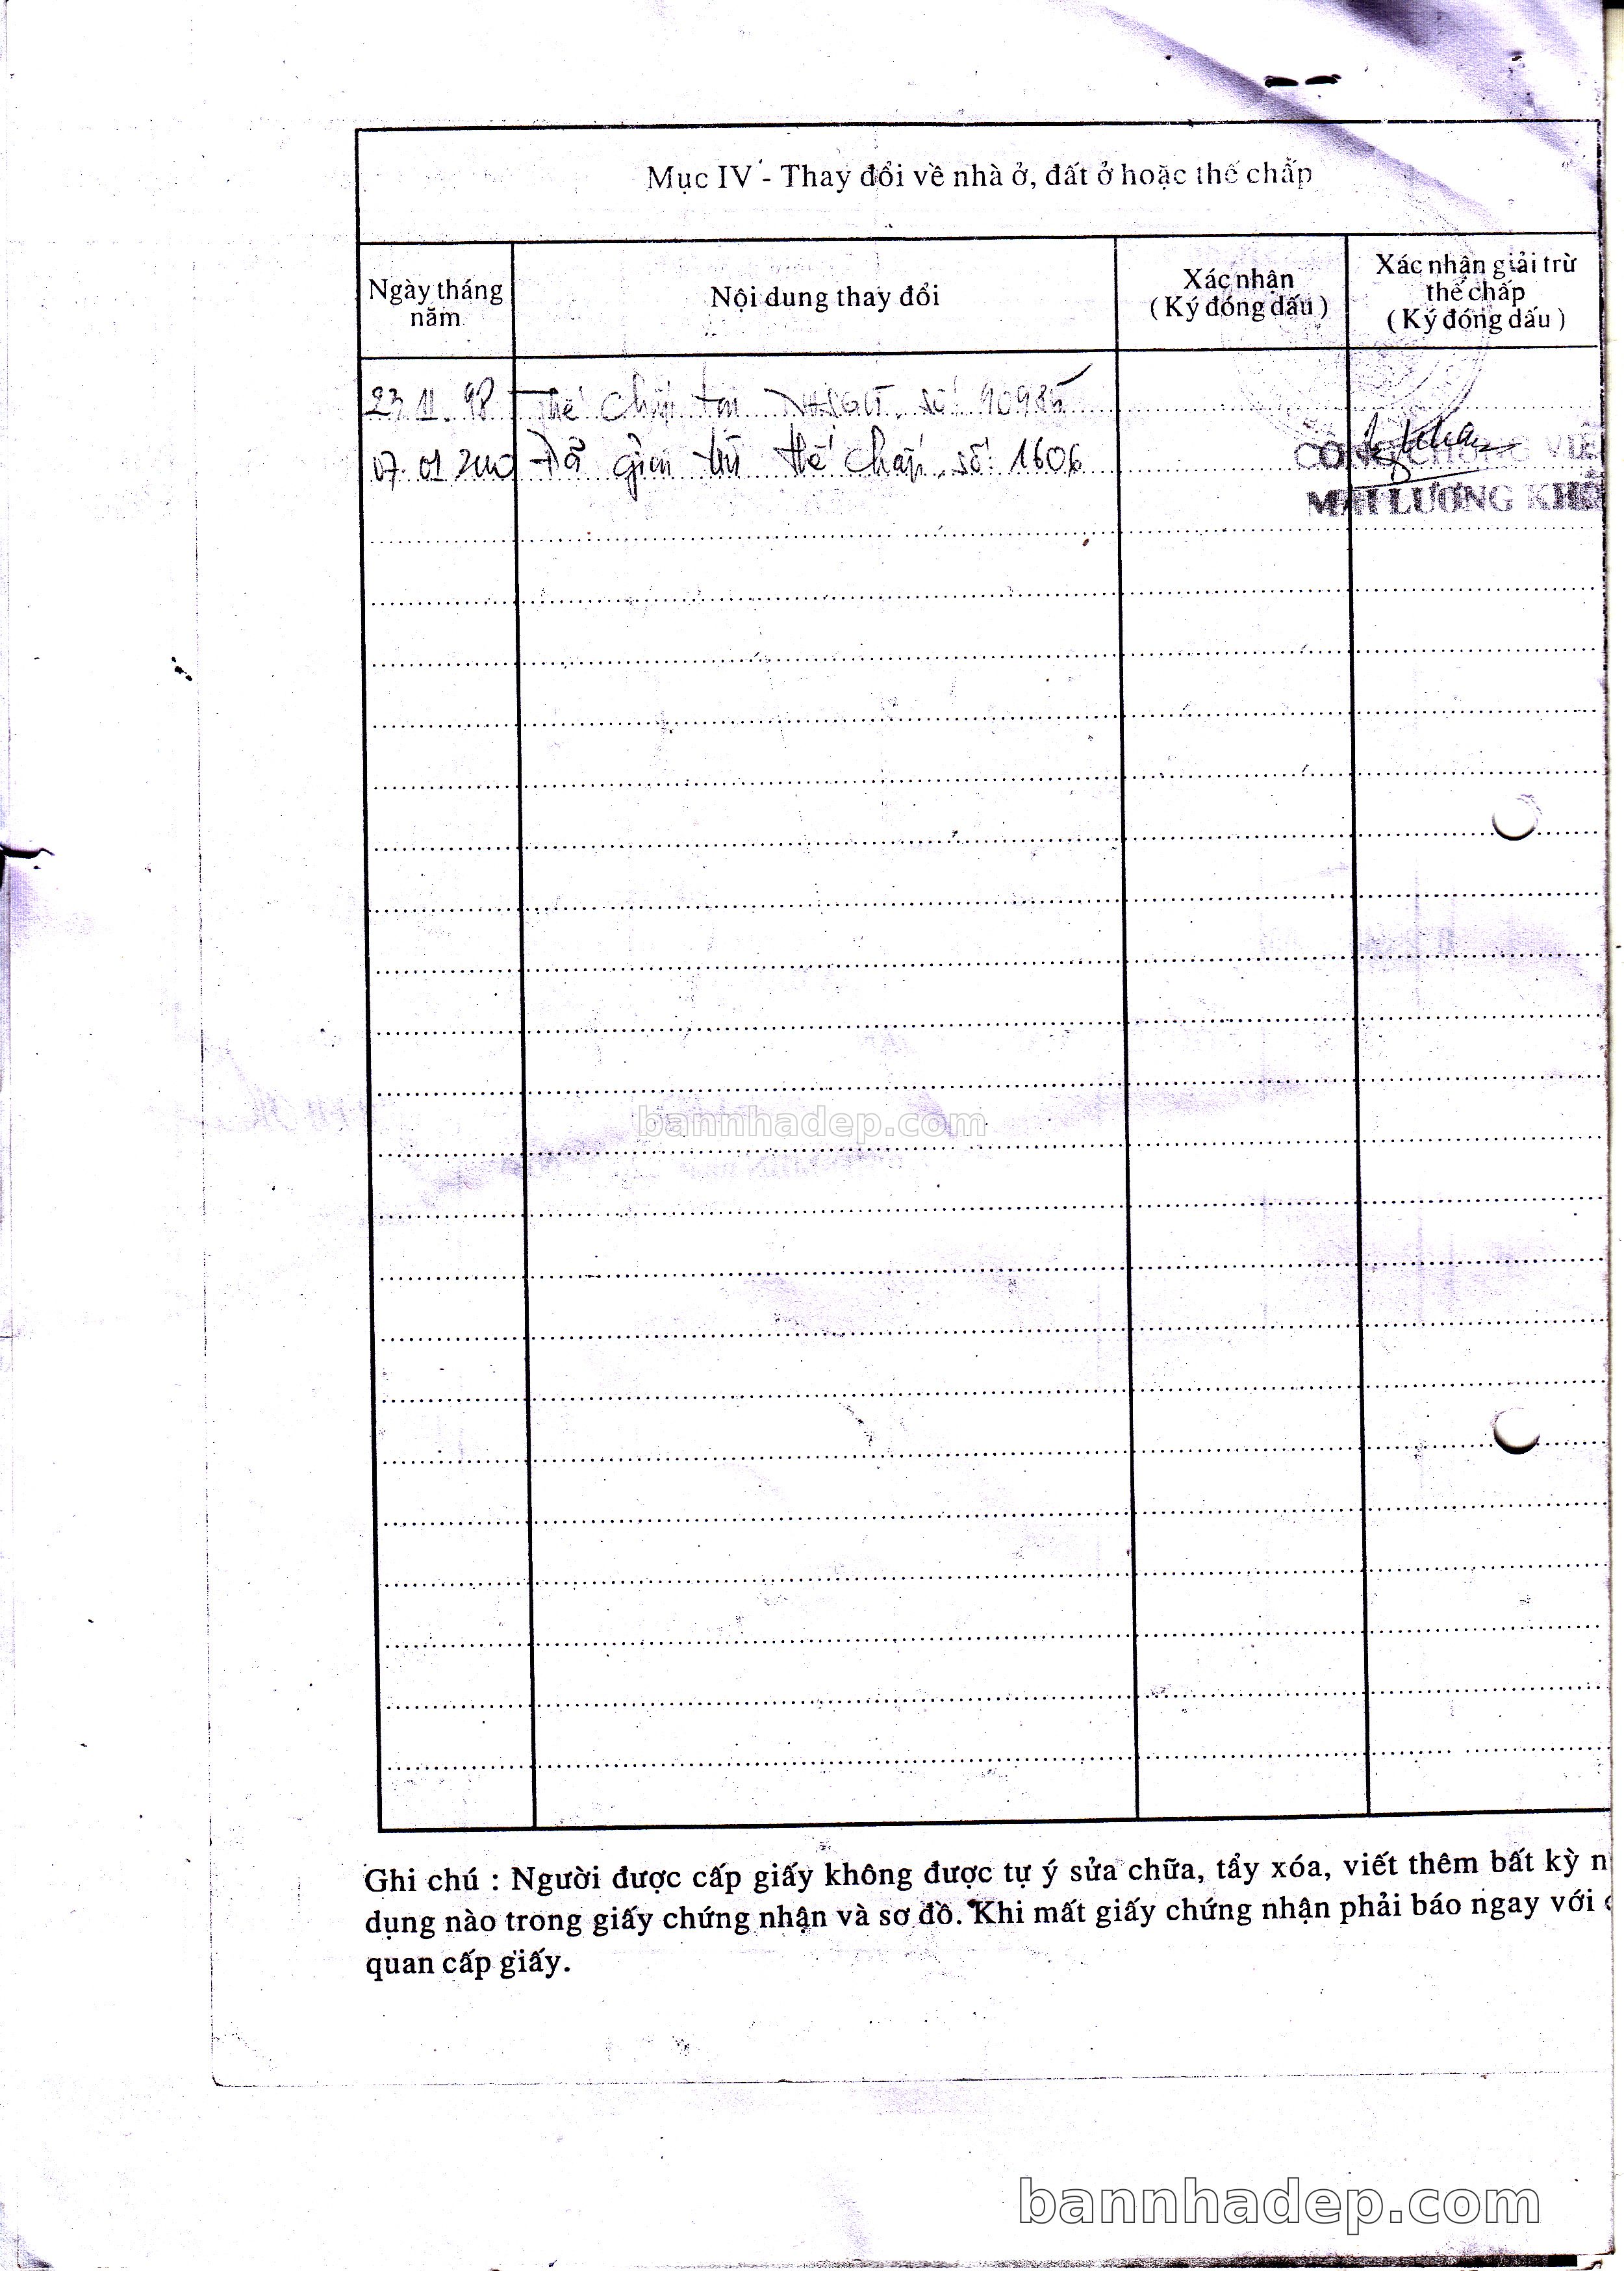 Mục IV - Thay đổi về nhà ở, đất ở hoặc thế chấp
Ngày tháng năm
Nội dung thay đổi
Xác nhận
( Ký đóng dấu )
Xác nhận giải trừ
thế chấp
( Ký đóng dấu )
23.11.98 Thế chấp tại số 10985
07.01 2000 Đã giải trừ thế chấp số: 1606
CÔNG CHỨNG VIÊ
MAI LƯƠNG KHÔ
bannhadep.com
Ghi chú : Người được cấp giấy không được tự ý sửa chữa, tẩy xóa, viết thêm bất kỳ n
dụng nào trong giấy chứng nhận và sơ đồ. Khi mất giấy chứng nhận phải báo ngay với c
quan cấp giấy.
bannhadep.com